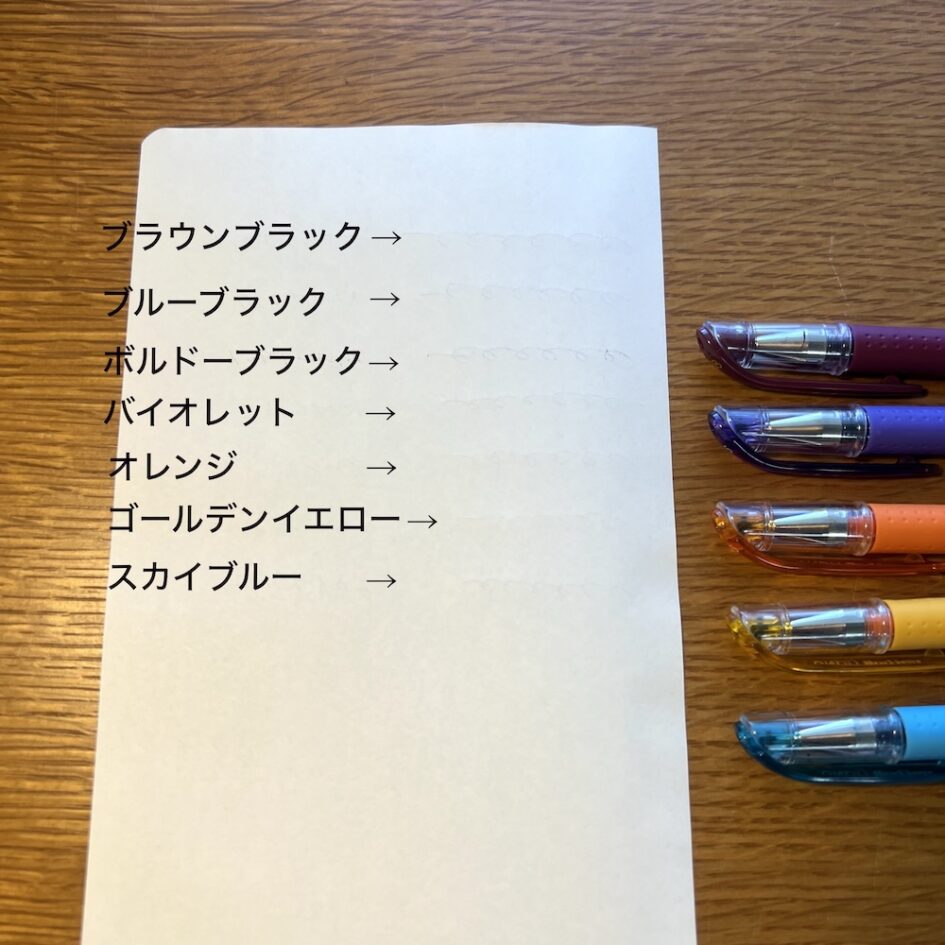 ブラウンブラック→
ブルーブラック →
ボルドーブラック→
バイオレット →
オレンジ →
ゴールデンイエロー→
スカイブルー →